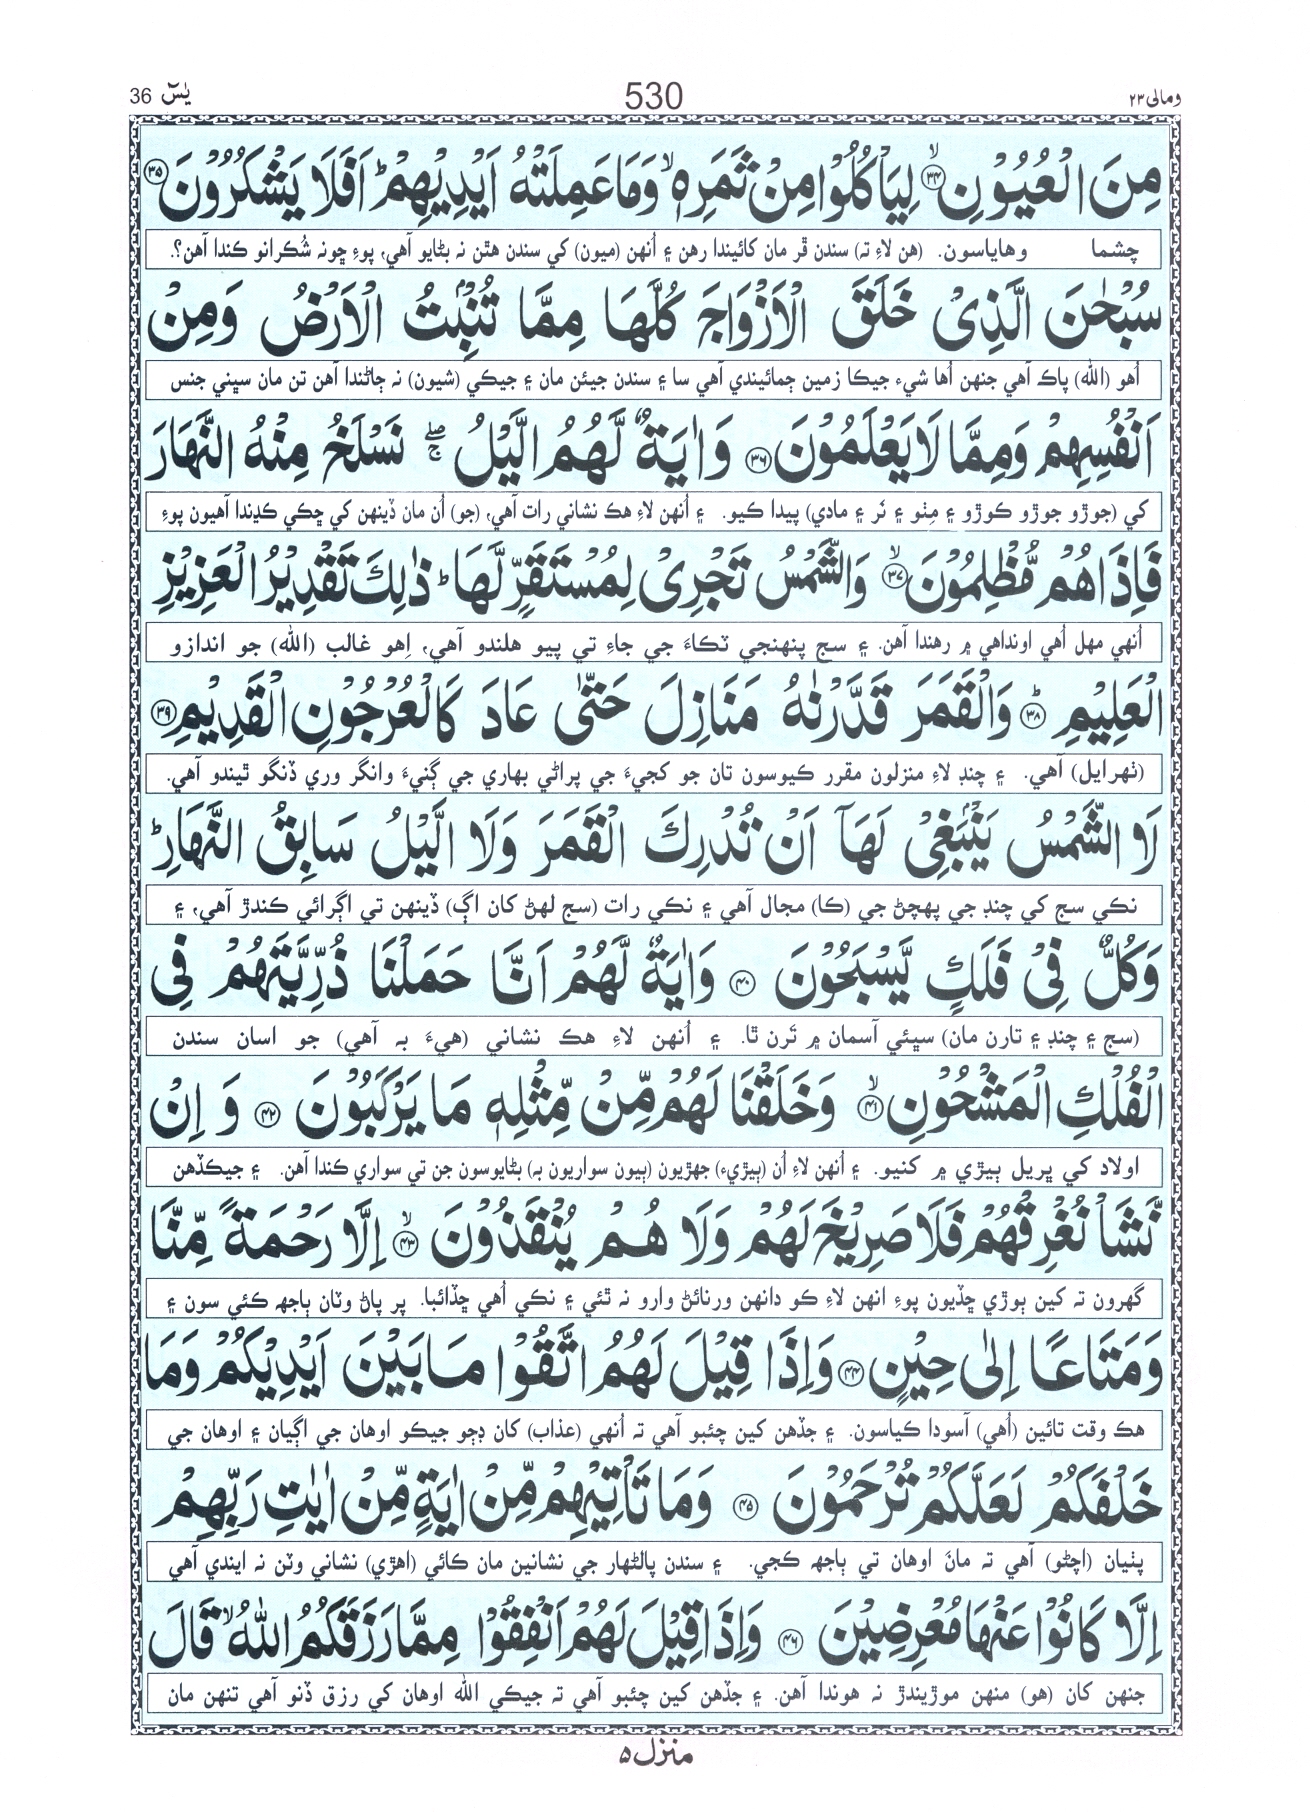 يٰسٓ 36
530
ومالى ٢٣
مِنَ الْعُيُوْنِ ۙ﴿۳۴﴾ لِيَاْكُلُوْا مِنْ ثَمَرِهٖ ۙ وَمَا عَمِلَتْهُ اَيْدِيْهِمْ ؕ اَفَلَا يَشْكُرُوْنَ ﴿۳۵﴾
چشما وهاياسون. (هن لاءِ ته) سندن ڦر مان کائيندا رهن ۽ اُنهن (ميون) کي سندن هٿن نه بڻايو آهي، پوءِ ڇونه شُڪرانو ڪندا آهن؟.
سُبْحٰنَ الَّذِىْ خَلَقَ الْاَزْوَاجَ كُلَّهَا مِمَّا تُنْۢبِتُ الْاَرْضُ وَمِنْ
اُهو (الله) پاڪ آهي جنهن اُها شيء جيڪا زمين ڄمائيندي آهي سا ۽ سندن جيئن مان ۽ جيڪي (شيون) نه ڄاڻندا آهن تن مان سڀني جنس
اَنْفُسِهِمْ وَمِمَّا لَا يَعْلَمُوْنَ ﴿۳۶﴾ وَاٰيَةٌ لَّهُمُ الَّيْلُ ۖۚ نَسْلَخُ مِنْهُ النَّهَارَ
کي (جوڙو جوڙو ڪوڙو ۽ مِٺو ۽ نَر ۽ مادي) پيدا ڪيو. ۽ اُنهن لاءِ هڪ نشاني رات آهي، (جو) اُن مان ڏينهن کي ڇڪي ڪڍندا آهيون پوءِ
فَاِذَا هُمْ مُّظْلِمُوْنَ ۙ﴿۳۷﴾ وَالشَّمْسُ تَجْرِىْ لِمُسْتَقَرٍّ لَّهَا ؕ ذٰلِكَ تَقْدِيْرُ الْعَزِيْزِ
اُنهي مهل اُهي اونداهي ۾ رهندا آهن. ۽ سج پنهنجي ٽڪاءَ جي جاءِ تي پيو هلندو آهي، اِهو غالب (الله) جو اندازو
الْعَلِيْمِ ؕ﴿۳۸﴾ وَالْقَمَرَ قَدَّرْنٰهُ مَنَازِلَ حَتّٰى عَادَ كَالْعُرْجُوْنِ الْقَدِيْمِ ﴿۳۹﴾
(ٺهرايل) آهي. ۽ چنڊ لاءِ منزلون مقرر ڪيوسون تان جو کجيءَ جي پراڻي بهاري جي ڳنيءَ وانگر وري ڏنگو ٿيندو آهي.
لَا الشَّمْسُ يَنْۢبَغِىْ لَهَاۤ اَنْ تُدْرِكَ الْقَمَرَ وَلَا الَّيْلُ سَابِقُ النَّهَارِ ؕ
نڪي سج کي چنڊ جي پهچڻ جي (ڪا) مجال آهي ۽ نڪي رات (سج لهڻ کان اڳ) ڏينهن تي اڳرائي ڪندڙ آهي، ۽
وَكُلٌّ فِىْ فَلَكٍ يَّسْبَحُوْنَ ﴿۴۰﴾ وَاٰيَةٌ لَّهُمْ اَنَّا حَمَلْنَا ذُرِّيَّتَهُمْ فِى
(سج ۽ چنڊ ۽ تارن مان) سڀئي آسمان ۾ تَرن ٿا. ۽ اُنهن لاءِ هڪ نشاني (هيءَ به آهي) جو اسان سندن
الْفُلْكِ الْمَشْحُوْنِ ۙ﴿۴۱﴾ وَخَلَقْنَا لَهُمْ مِّنْ مِّثْلِهٖ مَا يَرْكَبُوْنَ ﴿۴۲﴾ وَ اِنْ
اولاد کي ڀريل ٻيڙي ۾ کنيو. ۽ اُنهن لاءِ اُن (ٻيڙيءَ) جهڙيون (ٻيون سواريون به) بڻايوسون جن تي سواري ڪندا آهن. ۽ جيڪڏهن
نَّشَاْ نُغْرِقْهُمْ فَلَا صَرِيْخَ لَهُمْ وَلَا هُمْ يُنْقَذُوْنَ ۙ﴿۴۳﴾ اِلَّا رَحْمَةً مِّنَّا
گهرون ته کين ٻوڙي ڇڏيون پوءِ انهن لاءِ ڪو دانهن ورنائڻ وارو نه ٿئي ۽ نڪي اُهي ڇڏائبا. پر پاڻ وٽان ٻاجهه ڪئي سون ۽
وَمَتَاعًا اِلٰى حِيْنٍ ﴿۴۴﴾ وَاِذَا قِيْلَ لَهُمُ اتَّقُوْا مَا بَيْنَ اَيْدِيْكُمْ وَمَا
هڪ وقت تائين (اُهي) آسودا ڪياسون. ۽ جڏهن کين چئبو آهي ته اُنهي (عذاب) کان ڊڄو جيڪو اوهان جي اڳيان ۽ اوهان جي
خَلْفَكُمْ لَعَلَّكُمْ تُرْحَمُوْنَ ﴿۴۵﴾ وَمَا تَاْتِيْهِمْ مِّنْ اٰيَةٍ مِّنْ اٰيٰتِ رَبِّهِمْ
پٺيان (اچڻو) آهي ته مانَ اوهان تي ٻاجهه ڪجي. ۽ سندن پالڻهار جي نشانين مان ڪائي (اهڙي) نشاني وٽن نه ايندي آهي
اِلَّا كَانُوْا عَنْهَا مُعْرِضِيْنَ ﴿۴۶﴾ وَاِذَا قِيْلَ لَهُمْ اَنْفِقُوْا مِمَّا رَزَقَكُمُ اللّٰهُ ۙ قَالَ
جنهن کان (هو) منهن موڙيندڙ نه هوندا آهن. ۽ جڏهن کين چئبو آهي ته جيڪي الله اوهان کي رزق ڏنو آهي تنهن مان
منزل ۵